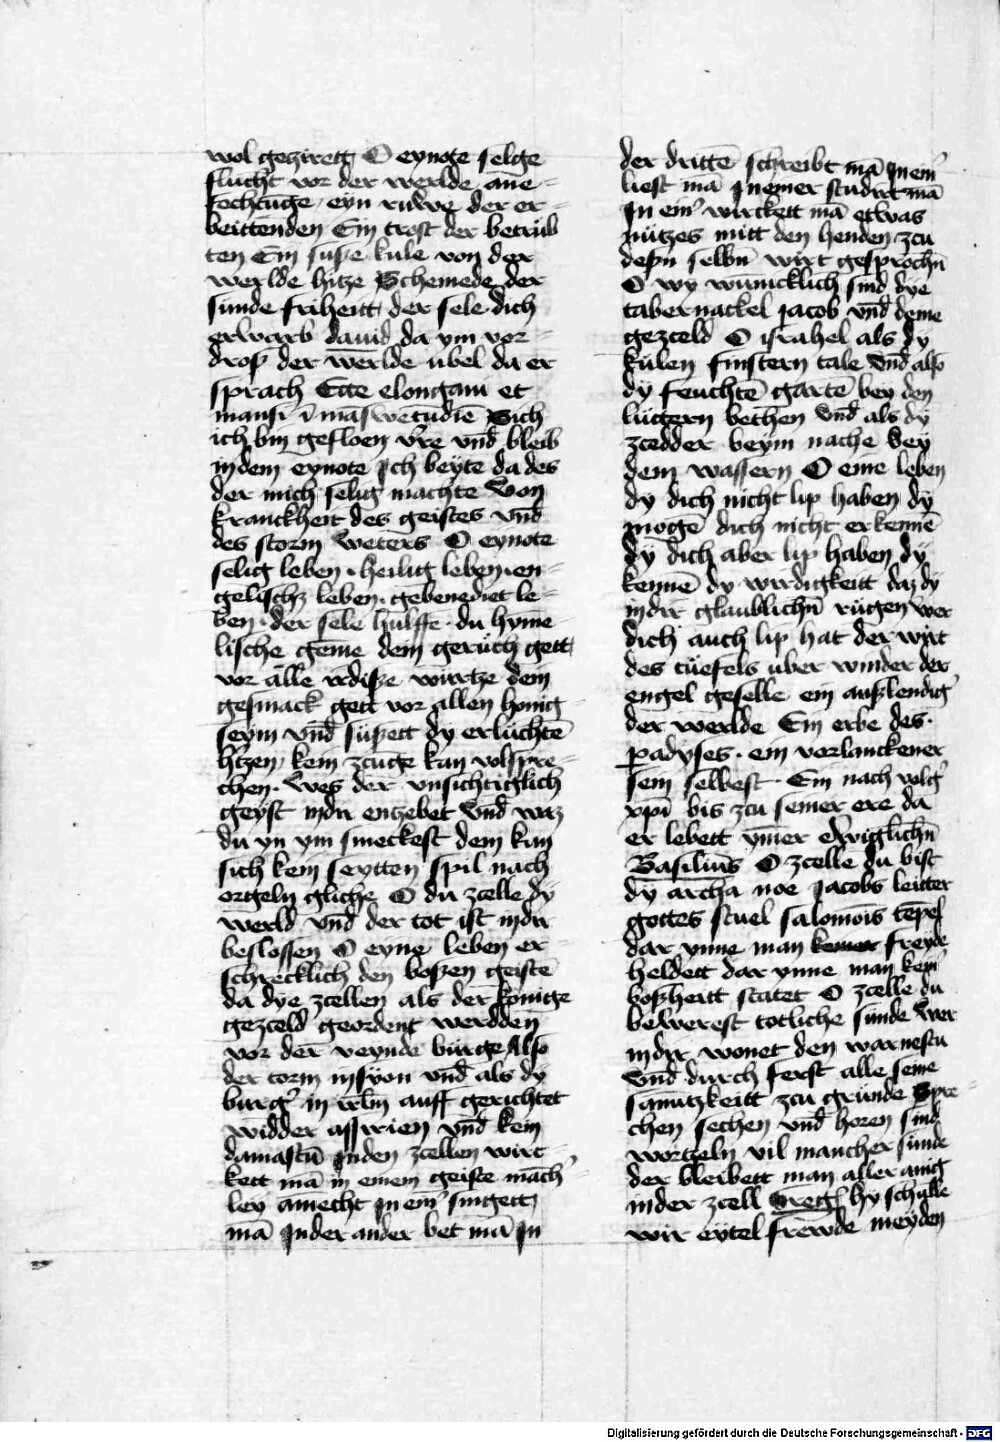 wol geziretꝫ O eynote selge
flucht vor der werlde ane
fechtuge eyn ruhwe der er
beittenden Ein trost der betrub
ten Ein suße kule von der
werlde hitze Schemede der
sunde friheitt der sele dich
erwarb dauid da ym vor
droß der werlde ubel da er
sprach Ecce elongaui et
mansi Sich
ich bin gefloen vñd bleib
indem eynote Ich beyte da des
der mich selig machte Von
kranckheit des geistes vnd
des storm weters O eynote
selig leben · heilig leben · en
gelischz leben · gebenediet le
ben · der sele hulffe · du hyme
lische dem geruch gett
vor alle irdiße wurtze dein
gesmack gett vor allen honig
seym vnd sußett dy erluchtē
hitzen kein zcunge kan volspre
chen · Wes der vnsichtiglich
geyst indir entzebet Vnd waz
du yn ym smeckest dem kan
sich kein seytten spil nach
orgeln gliche O du zcelle dy
werld vnd der tot ist indir
beslossen O eyne leben er
schrecklich den boßen geistē
da dye zcellen als der konige
gezceld geordent werdden
vor der veynde burge Also
der torm insyon vnd als dy
burg in auff gerichtet
widder assirien vnd kein
damascū Inden zcellen wirc
kett mā in einem geiste māch
ley amecht In eim singett
mā Inder ander bet mā In
der drittē schreibt mā In eim
liest mā Ineiner studirt mā
In eim wirckett mā etwas
nutzes mitt den henden zcu
deßn selbn wirt gesprochn
O wy wunicklich sind dye
tabernackel jacob vnd deine
gezceld O israhel als dy
kulen finstern tale vnd also
dy feuchtē gartē bey den
bechen vnd als dy
zcedder beym nache bey
dem wassern O eine leben
dy dich nicht lip haben dy
mogē dich nicht erkennē
dy dich aber lip haben dy
kennē dy wirdigkeitt daz dy
indir glaublichn rugen wer
dich auch lip hat der wirt
des tuefels uber winder der
engel geselle ein außlendig
der werlde Ein erbe des
padyses · ein vorlanckener
sein selbest · Ein nach volg
xpi bis zcu seiner ere da
er lebett ymer ewiglichn
Basilius O zcelle du bist
dy archa noe Jacobs leitter
gottes stuel salomōis tēpel
dar ynne man freude
heldett dar ynne man kein
boßheitt statet O zcelle du
bewerest totliche sunde Wer
indir wonet den warnestu
Vnd durch ferst alle seine
samutzkeitt zcu grunde Spre
chen sechen vnd horen sind
wortzeln vil mancher sunde
der bleibett man aller
inder zcell Greg hy schulle
wir eytel frewde meyden
Digitalisierung gefördert durch die Deutsche Forschungsgemeinschaft - DFG